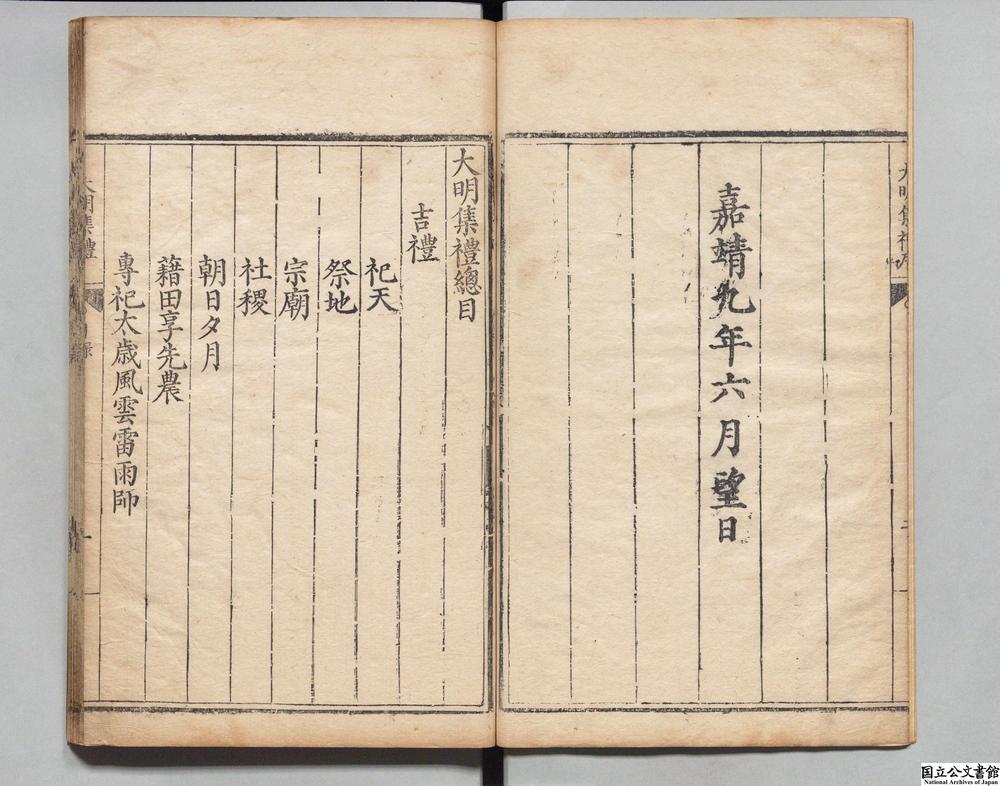 嘉靖九年六月望日
大明集禮總目
吉禮
祀天
祭地
宗廟
社稷
朝日夕月
藉田享先農
專祀太歲風雲雷雨師
大明集禮
国立公文書館
National Archives of Japan